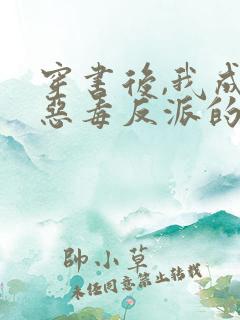 穿書後,我成
惡毒反派的
帥小草
未經同意禁止轉載